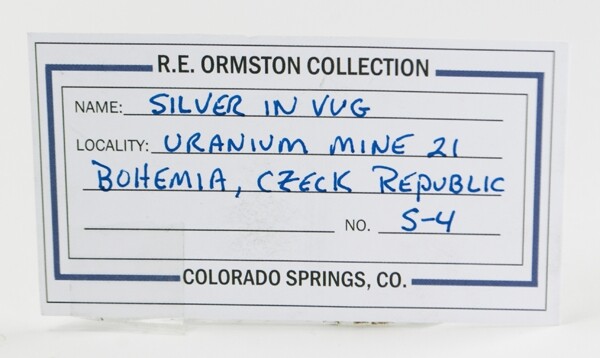 R.E. ORMSTON COLLECTION
NAME: SILVER IN VUG
LOCALITY: URANIUM MINE 21
BOHEMIA, CZECK REPUBLIC
NO. S-4
COLORADO SPRINGS, CO.